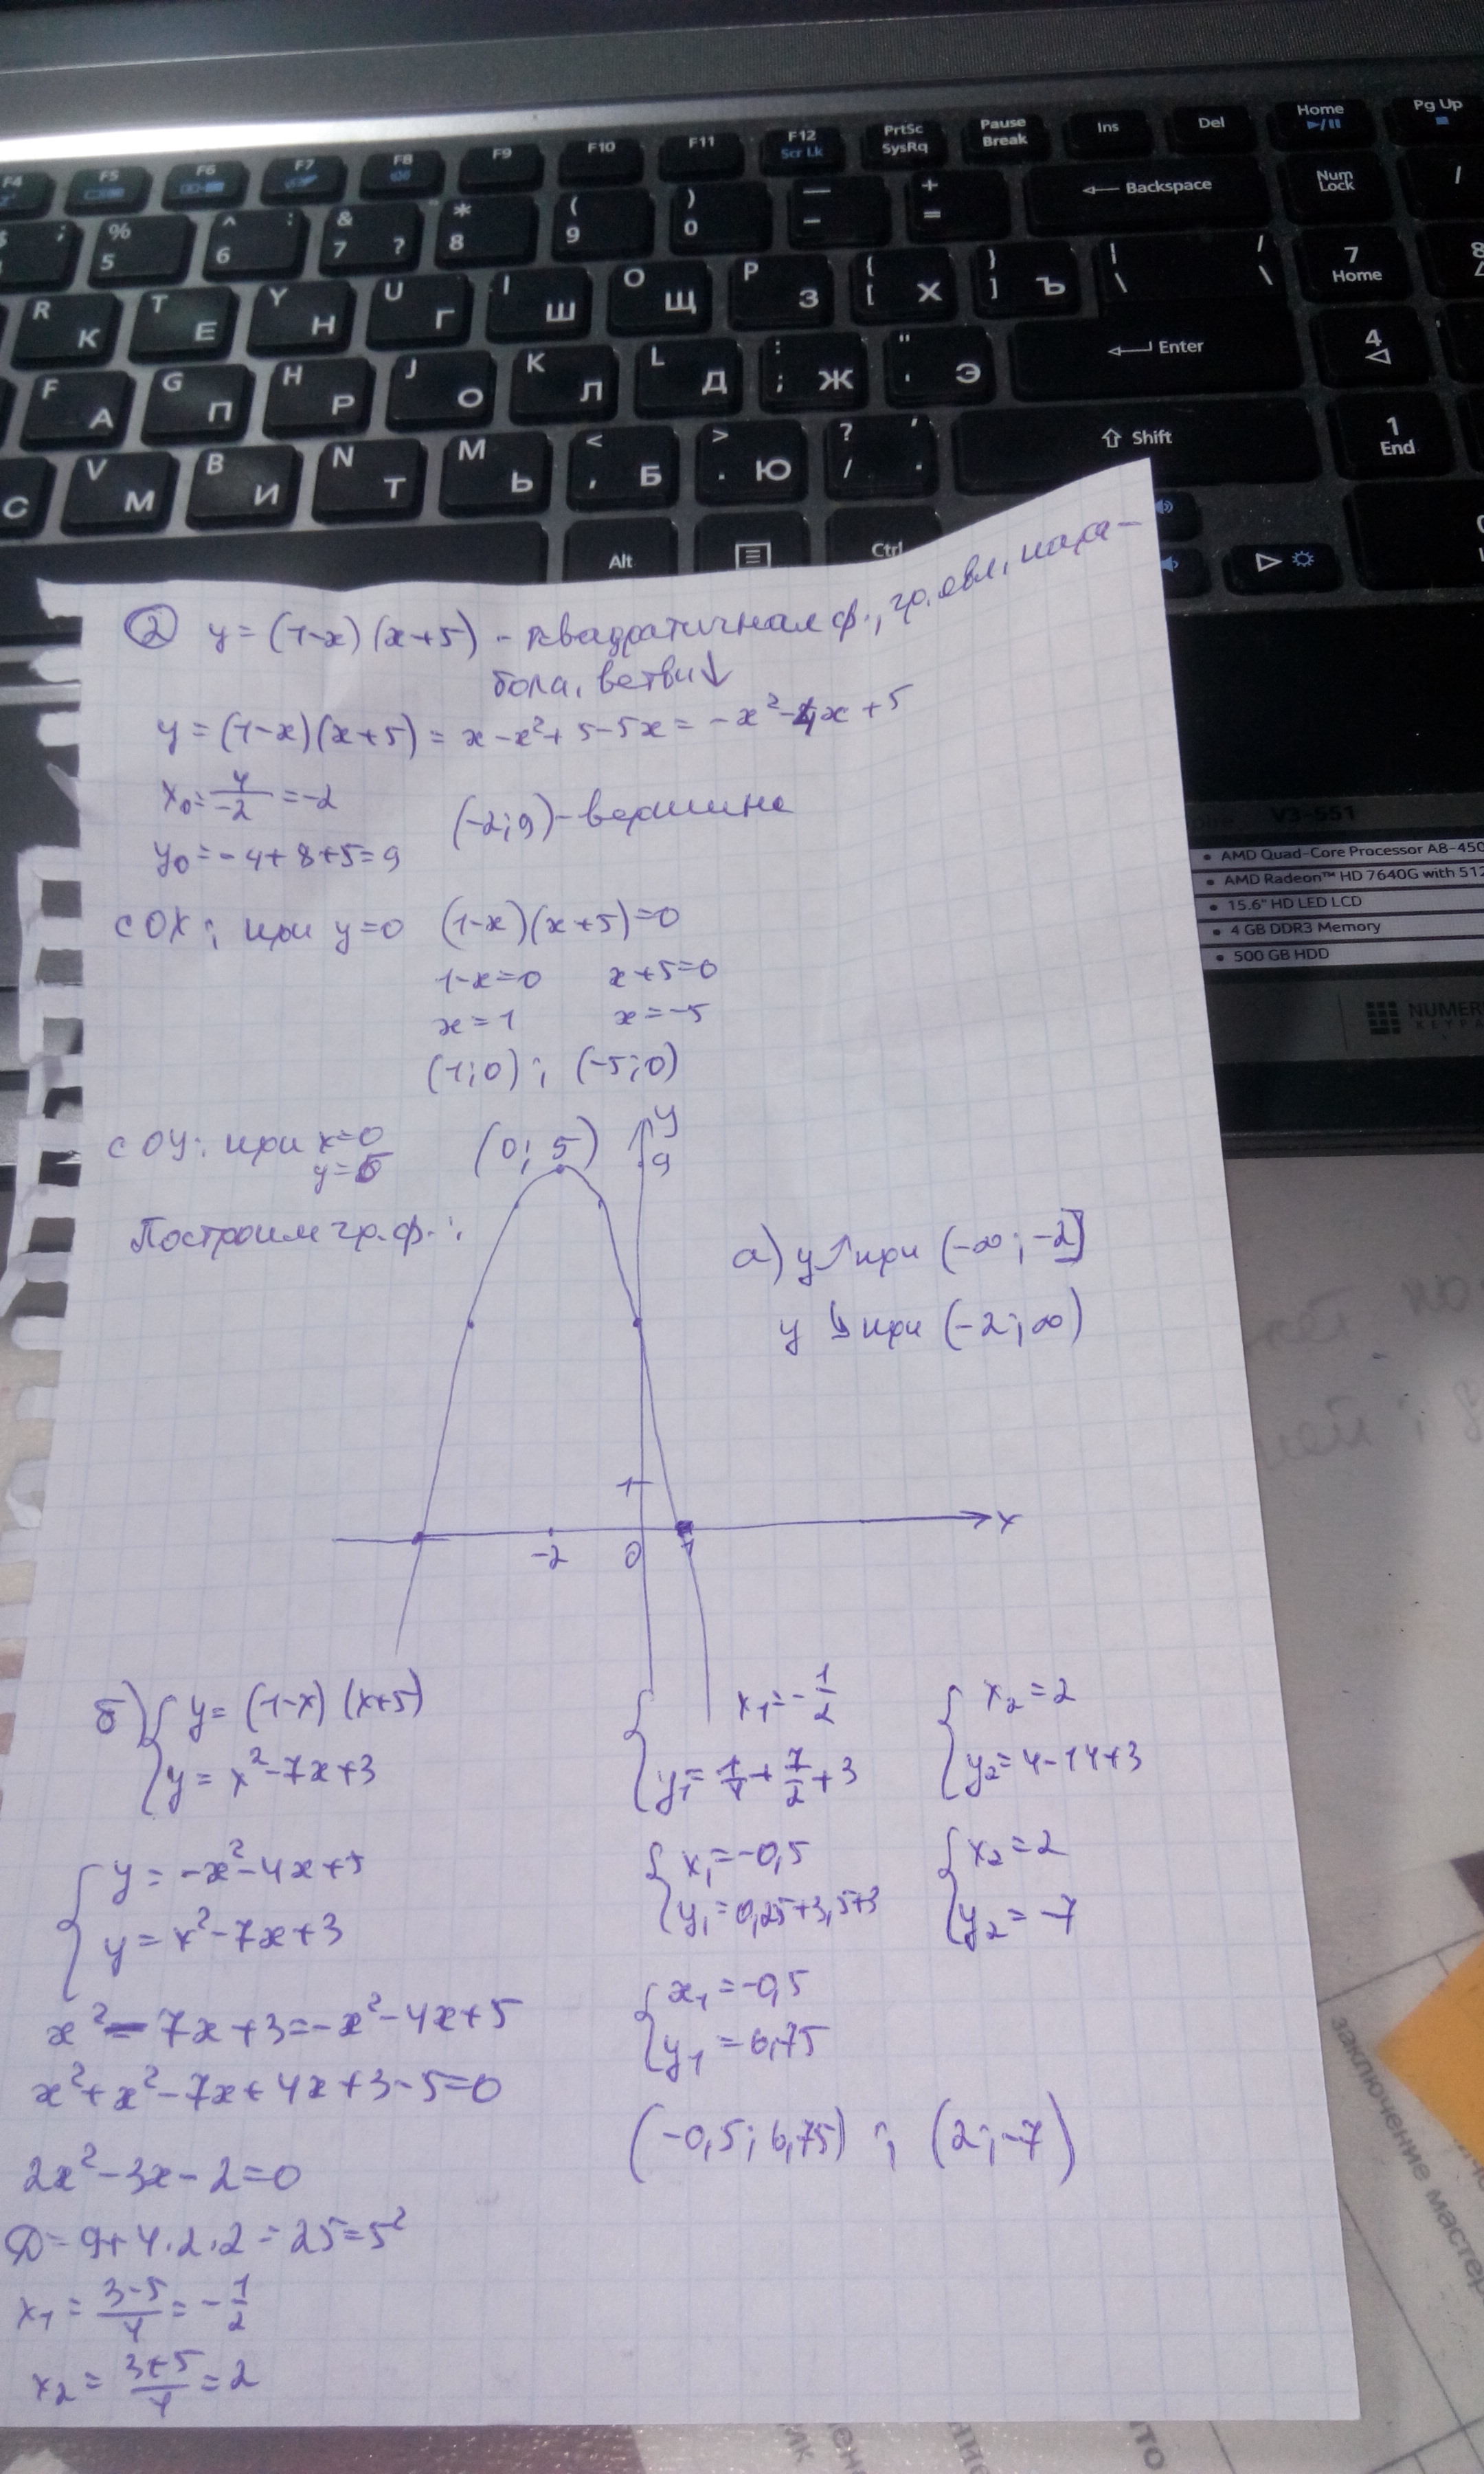 F4 F5 F6 F7 F8 F9 F10 F11 F12 Scr Lk PrtSc SysRq Pause Break Ins Del Home Pg Up
% 5 ^ : 6 & 7 ? * 8 ( 9 ) 0 — – + = Backspace Num Lock /
R К T Е Y Н U Г I Ш O Щ P З { [ Х } ] Ъ | \ / \ 7 Home 8
F А G П H Р J О K Л L Д : ; Ж " ' Э Enter 4
С V М B И N Т M Ь < , Б > . Ю ? / , . Shift 1 End
Alt Ctrl
V3-551
• AMD Quad-Core Processor A8-450
• AMD Radeon™ HD 7640G with 512
• 15.6" HD LED LCD
• 4 GB DDR3 Memory
• 500 GB HDD
NUMER
KEYPA
② y = (1-x)(x+5) - квадратичная ф., гр. явл. пара-
бола, ветви ↓
y = (1-x)(x+5) = x - x²+ 5-5x = -x²-4x+5
x₀= 4/-2 = -2
(-2;9) - вершина
y₀ = -4+8+5=9
с OX: при y=0 (1-x)(x+5)=0
1-x=0 x+5=0
x=1 x=-5
(1;0); (-5;0)
с OY: при x=0 (0; 5)
y=5
Построим гр. ф.:
y
9
1
-2 0 1 x
а) y↗ при (-∞; -2]
y ↘ при (-2; ∞)
б) { y= (1-x)(x+5)
y= x²-7x+3
{ y= -x²-4x+5
y= x²-7x+3
x²-7x+3=-x²-4x+5
x²+x²-7x+4x+3-5=0
2x²-3x-2=0
D= 9+4·2·2=25=5²
x₁ = 3-5/4 = -1/2
x₂ = 3+5/4 = 2
{ x₁=-1/2
y₁= 1/4 + 7/2 + 3
{ x₁=-0,5
y₁=0,25+3,5+3
{ x₁=-0,5
y₁=6,75
{ x₂=2
y₂=4-14+3
{ x₂=2
y₂=-7
(-0,5; 6,75); (2;-7)
заключение мастер